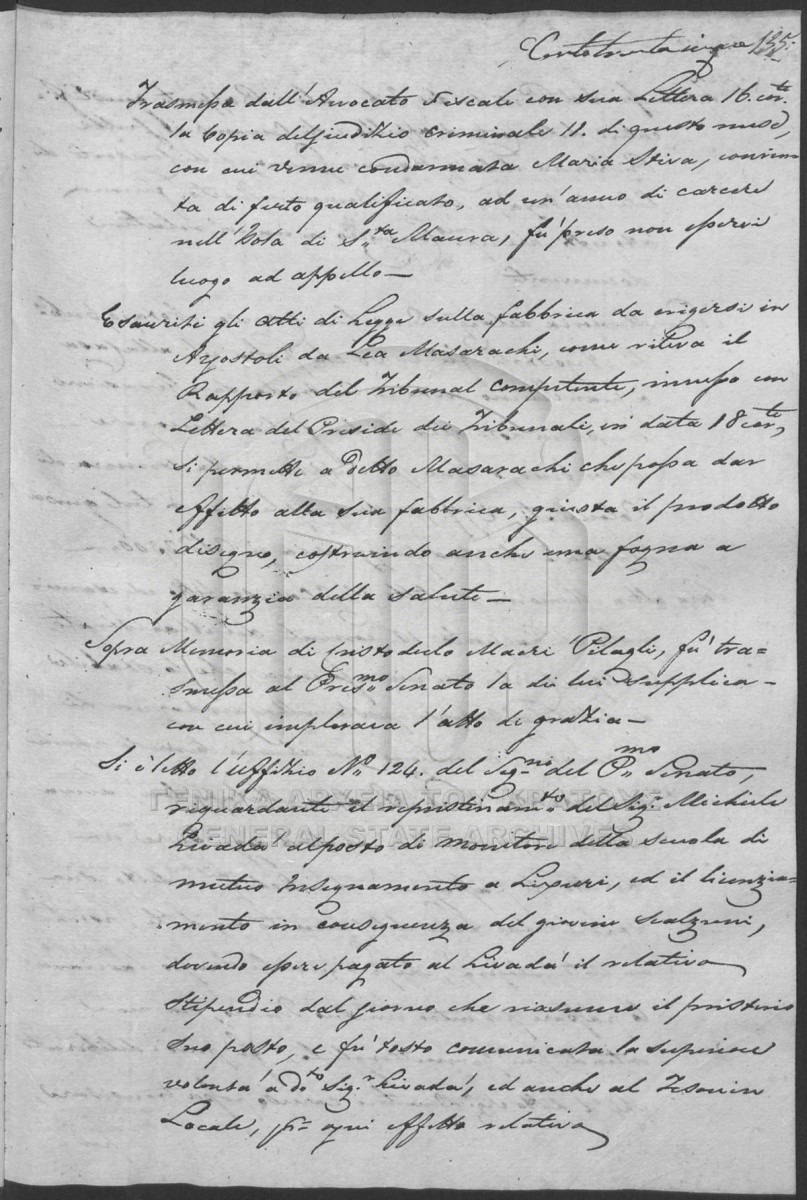 Centotrentacinque 135.
Trasmessa dall'Avvocato Fiscale con sua Lettera 16. corrte.
la Copia del Giudizio Criminale 11. di questo mese,
con cui venne condannata Maria Stiva, convin-
ta di furto qualificato, ad un'anno di carcere
nell'Isola di S.ta Maura, fu' preso non esservi
luogo ad appello —
Esauriti gli Atti di Legge sulla fabbrica da erigersi in
Argostoli da Lea Masarachi, come rileva il
Rapporto del Tribunal competente, inmesso con
Lettera del Preside dei Tribunali, in data 18 corrte,
si permette a detto Masarachi che possa dar
effetto alla sua fabbrica, giusta il prodotto
disegno, costruendo anche una fogna a
garanzia della salute —
Sopra Memoria di Cristodulo Macri Pilagli, fu' tra=
smessa al Pres.mo Senato la di lui supplica —
con cui implorava l'atto di grazia —
Si è letto l'Uffizio N.o 124. del Seg.no del P.mo Senato,
riguardante il repristinam.to del Sig.r Michiele
Livadà al posto di monitore della scuola di
mutuo Insegnamento a Lixuri, ed il licenzia-
mento in conseguenza del giovine Scalzuni,
dovendo essere pagato al Livadà il relativo
Stipendio dal giorno che riassume il pristino
suo posto, e fu' tosto comunicata la superiore
volontà a d.to Sig.r Livadà, ed anche al Tesorier
Locale, p. ogni effetto relativo
ΓΕΝΙΚΑ ΑΡΧΕΙΑ ΤΟΥ ΚΡΑΤΟΥΣ
GENERAL STATE ARCHIVES